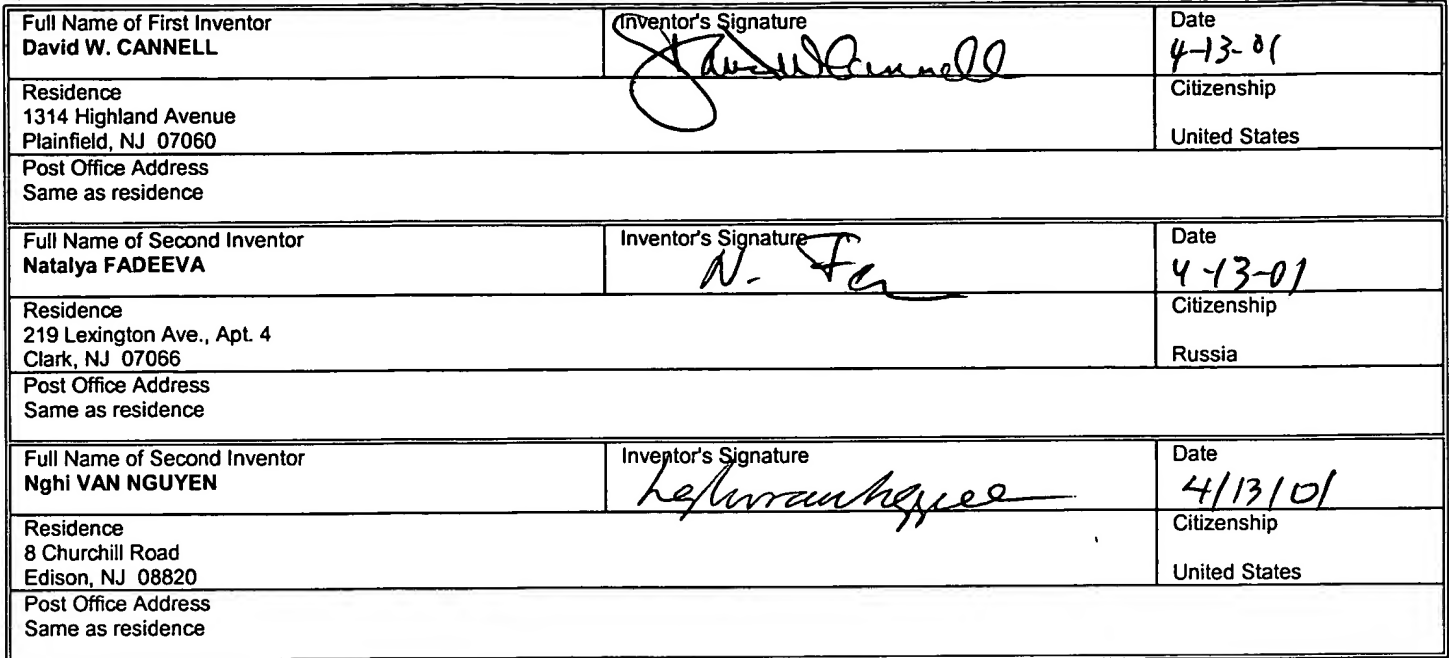 Full Name of First Inventor
David W. CANNELL
Inventor's Signature
David W Cannell
Date
4-13-01
Residence
1314 Highland Avenue
Plainfield, NJ 07060
Citizenship
United States
Post Office Address
Same as residence
Full Name of Second Inventor
Natalya FADEEVA
Inventor's Signature
N.
Date
4-13-01
Residence
219 Lexington Ave., Apt. 4
Clark, NJ 07066
Citizenship
Russia
Post Office Address
Same as residence
Full Name of Second Inventor
Nghi VAN NGUYEN
Inventor's Signature
Date
4/13/01
Residence
8 Churchill Road
Edison, NJ 08820
Citizenship
United States
Post Office Address
Same as residence